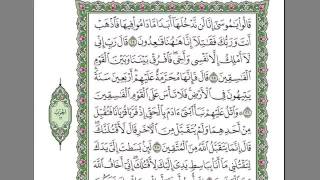 قَالُوا۟ يَـٰمُوسَىٰٓ إِنَّا لَن نَّدْخُلَهَآ أَبَدًا مَّا دَامُوا۟ فِيهَا فَٱذْهَبْ
أَنتَ وَرَبُّكَ فَقَـٰتِلَآ إِنَّا هَـٰهُنَا قَـٰعِدُونَ ۝ قَالَ رَبِّ إِنِّى
لَآ أَمْلِكُ إِلَّا نَفْسِى وَأَخِى فَٱفْرُقْ بَيْنَنَا وَبَيْنَ ٱلْقَوْمِ
ٱلْفَـٰسِقِينَ ۝ قَالَ فَإِنَّهَا مُحَرَّمَةٌ عَلَيْهِمْ أَرْبَعِينَ سَنَةً
يَتِيهُونَ فِى ٱلْأَرْضِ فَلَا تَأْسَ عَلَى ٱلْقَوْمِ ٱلْفَـٰسِقِينَ
۝ وَٱتْلُ عَلَيْهِمْ نَبَأَ ٱبْنَىْ ءَادَمَ بِٱلْحَقِّ إِذْ قَرَّبَا قُرْبَانًا فَتُقُبِّلَ
مِنْ أَحَدِهِمَا وَلَمْ يُتَقَبَّلْ مِنَ ٱلْـَٔاخَرِ قَالَ لَأَقْتُلَنَّكَ
قَالَ إِنَّمَا يَتَقَبَّلُ ٱللَّهُ مِنَ ٱلْمُتَّقِينَ ۝ لَئِنۢ بَسَطتَ إِلَىَّ يَدَكَ
لِتَقْتُلَنِى مَآ أَنَا۠ بِبَاسِطٍ يَدِىَ إِلَيْكَ لِأَقْتُلَكَ إِنِّىٓ أَخَافُ ٱللَّهَ